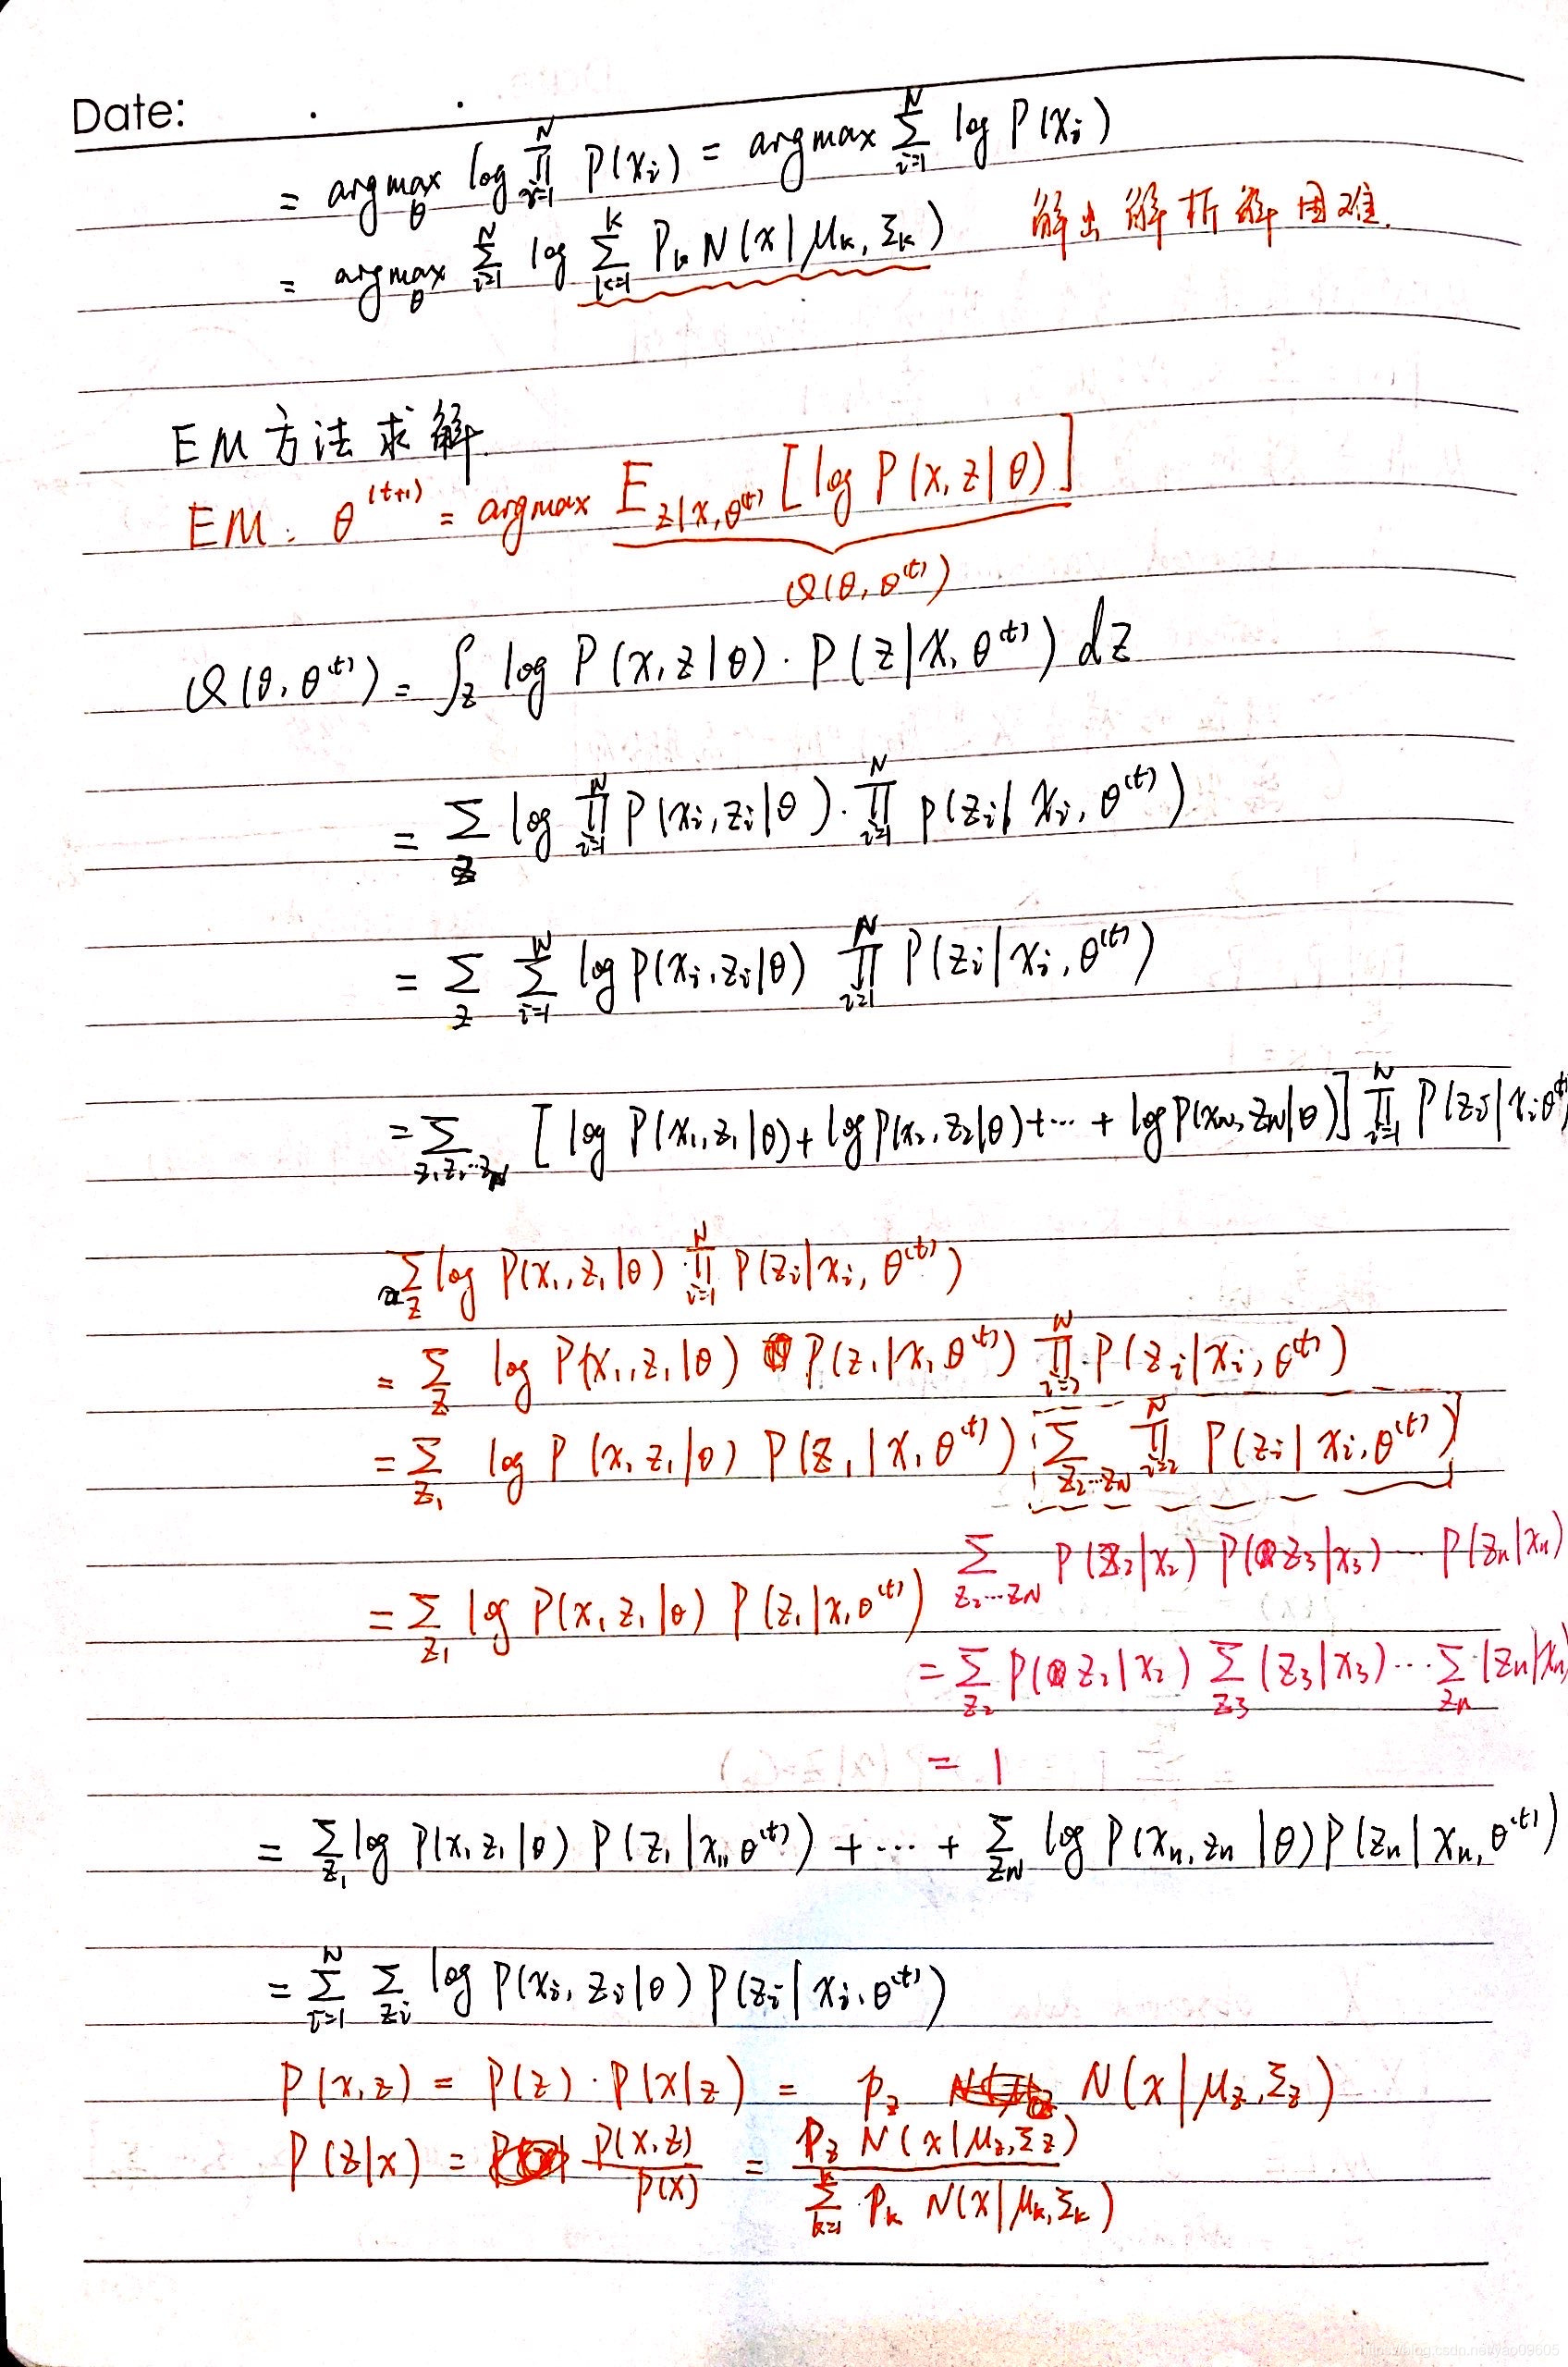 Date:
= argmax_θ log ∏_{i=1}^{N} P(x_i) = argmax ∑_{i=1}^{N} log P(x_i)
= argmax_θ ∑_{i=1}^{N} log ∑_{k=1}^{K} P_k N(x|μ_k, Σ_k) 解出解析解困难.
EM方法求解.
EM: θ^{(t+1)} = argmax E_{z|x,θ^{(t)}} [log P(x,z|θ)]
Q(θ,θ^{(t)})
Q(θ,θ^{(t)}) = ∫_z log P(x,z|θ) · P(z|x,θ^{(t)}) dz
= ∑_z log ∏_{i=1}^{N} P(x_i,z_i|θ) · ∏_{i=1}^{N} P(z_i|x_i,θ^{(t)})
= ∑_z ∑_{i=1}^{N} log P(x_i,z_i|θ) ∏_{i=1}^{N} P(z_i|x_i,θ^{(t)})
= ∑_{z_1 z_2…z_N} [log P(x_1,z_1|θ) + log P(x_2,z_2|θ) + … + log P(x_N,z_N|θ)] ∏_{i=1}^{N} P(z_i|x_i θ^{(t)}
∑_z log P(x_1,z_1|θ) ∏_{i=1}^{N} P(z_i|x_i,θ^{(t)})
= ∑_z log P(x_1,z_1|θ) P(z_1|x_1 θ^{(t)}) ∏_{i=2}^{N} P(z_i|x_i,θ^{(t)})
= ∑_{z_1} log P(x_1 z_1|θ) P(z_1|x_1 θ^{(t)}) ∑_{z_2…z_N} ∏_{i=2}^{N} P(z_i|x_i,θ^{(t)})
∑_{z_2…z_N} P(z_2|x_2) P(z_3|x_3) … P(z_n|x_n)
= ∑_{z_1} log P(x_1 z_1|θ) P(z_1|x_1 θ^{(t)})
= ∑_{z_2} P(z_2|x_2) ∑_{z_3} (z_3|x_3) … ∑_{z_n} (z_n|x_n)
= 1
= ∑_{z_1} log P(x_1 z_1|θ) P(z_1|x_1,θ^{(t)}) + … + ∑_{z_N} log P(x_n,z_n|θ) P(z_n|x_n,θ^{(t)})
= ∑_{i=1}^{N} ∑_{z_i} log P(x_i,z_i|θ) P(z_i|x_i,θ^{(t)})
P(x,z) = P(z) · P(x|z) = P_z N(x|μ_z,Σ_z)
P(z|x) = P(x,z)/P(x) = P_z N(x|μ_z,Σ_z) / ∑_{k=1}^{K} P_k N(x|μ_k,Σ_k)